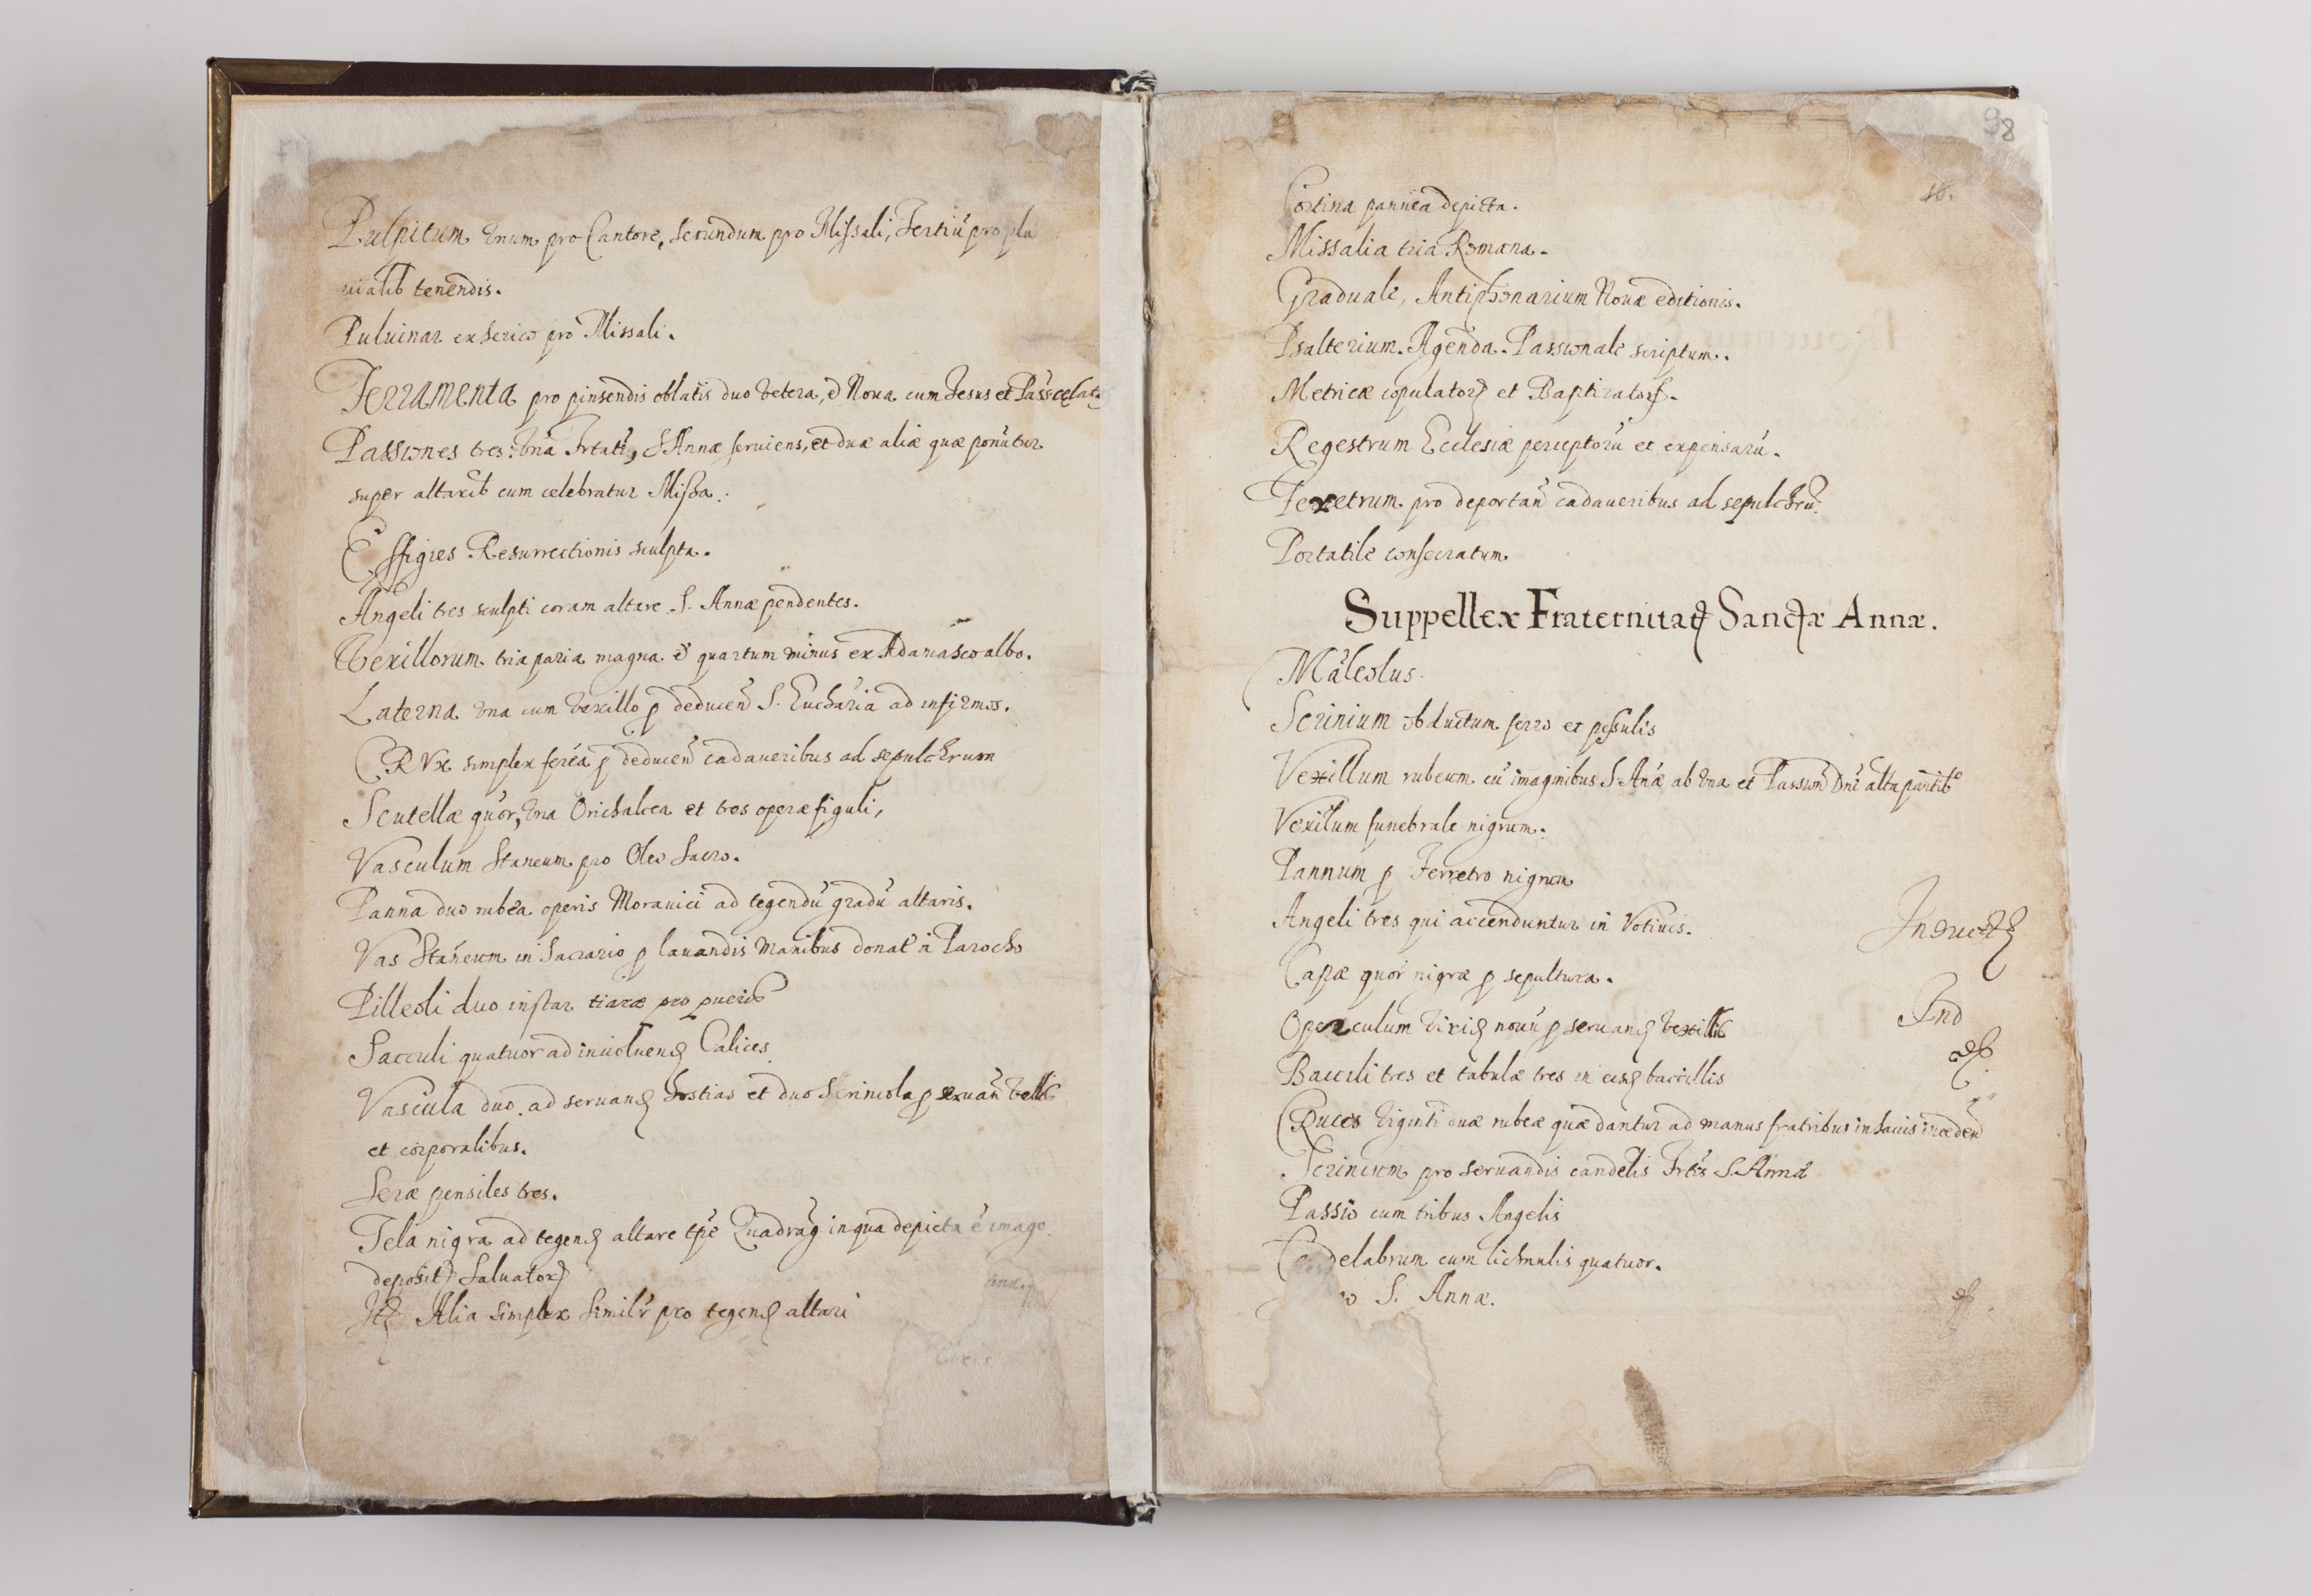 Pulpitum vnum pro Cantore, secundum pro Missali, Tertiũ pro plu
uialib tenendis.
Puluinar ex serico pro Missali.
Ferramenta pro pinsendis oblatis duo vetera, & Noua cum Jesus et
Passiones tres: vna S. Annæ seruiens, et duæ aliæ quæ ponũtur
super altarib cum celebratur Missa.
Effigies Resurrectionis sculpta.
Angeli tres sculpti coram altare S. Annæ pendentes.
Vexillorum tria paria magna & quartum minus ex Adamasco albo.
Laterna vna cum vexillo p deducen S. Eucharia ad infirmos.
CRVx simplex ferea p deducen cadaueribus ad sepulchrum
Scutellæ quor, vna Orichalcea et tres operæ figuli,
Vasculum Staneum pro Oleo Sacro.
Panna duo rubea operis Morauici ad tegendũ gradũ altaris.
Vas Staneum in Sacrario p lauandis manibus donat à Parocho
Pilleoli duo instar tiaræ pro puerib
Sacculi quatuor ad inuoluen Calices
Vascula duo ad seruan hostias et duo Scriniola p seruan
et corporalibus.
Seræ pensiles tres.
Tela nigra ad tegen altare tpe Quadrag in qua depicta ẽ imago
deposit Saluator
Alia simplex simil pro tegen altari
98
Cortina pannea depicta.
Missalia tria Romana.
Graduale, Antiphonarium Nouæ editionis.
Psalterium. Agenda. Passionale scriptum.
Metricæ copulator et Baptizator.
Regestrum Ecclesiæ perceptorũ et expensarũ.
Feretrum pro deportan cadaueribus ad sepulchrũ.
Portatile consecratum
Suppellex Fraternitat Sanctæ Annæ.
Maleolus.
Scrinium obductum ferro et pessulis
Vexillum rubeum cũ imaginibus S. Anæ ab vna et Passion Dni alta partib
Vexilum funebrale nigrum.
Pannum p Ferretro nigrum
Angeli tres qui accenduntur in Votiuis.
Capæ quor nigræ p sepultura.
Operculum nouũ p seruan vexillis
Ind
Baculi tres et tabulæ tres in eis bacillis
CRuces viginti duæ rubeæ quæ dantur ad manus fratribus in Sacris inceden
Scrineum pro seruandis candelis S. Annæ
Passio cum tribus Angelis
delabrum cum lichnulis quatuor.
S. Annæ.